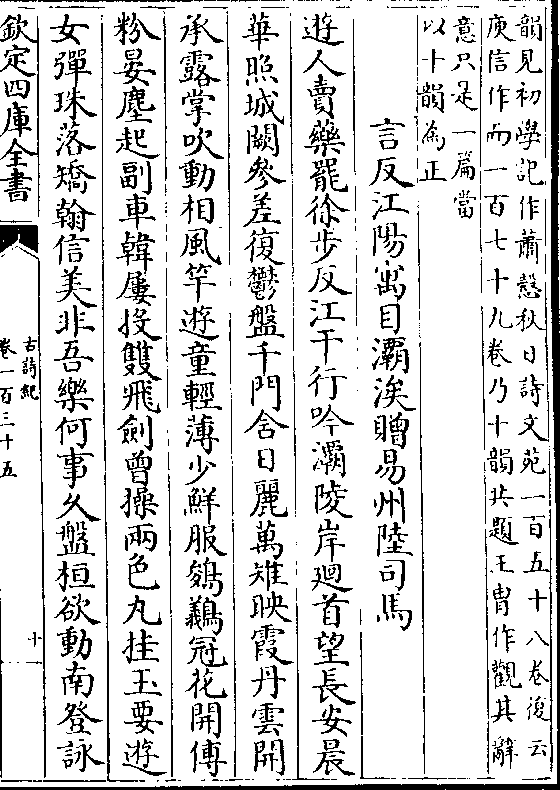 韻見初學記作蕭慤秋日詩文苑一百五十八卷復云
庾信作而一百七十九卷乃十韻共題王胄作觀其辭
意只是一篇當
以十韻為正
言反江陽寓目灞涘贈易州陸司馬
遊人賣藥罷徐步反江干行吟灞陵岸廻首望長安晨
華照城闕參差復鬱盤千門含日麗萬雉映霞丹雲開
承露掌吹動相風竿遊童輕薄少鮮服鵕鸃冠花開傅
粉晏塵起副車韓屢投雙飛劍曾操兩色丸挂玉要遊
女彈珠落矯翰信美非吾樂何事久盤桓欲動南登詠
欽定四庫全書
古詩紀
卷一百三十五
十